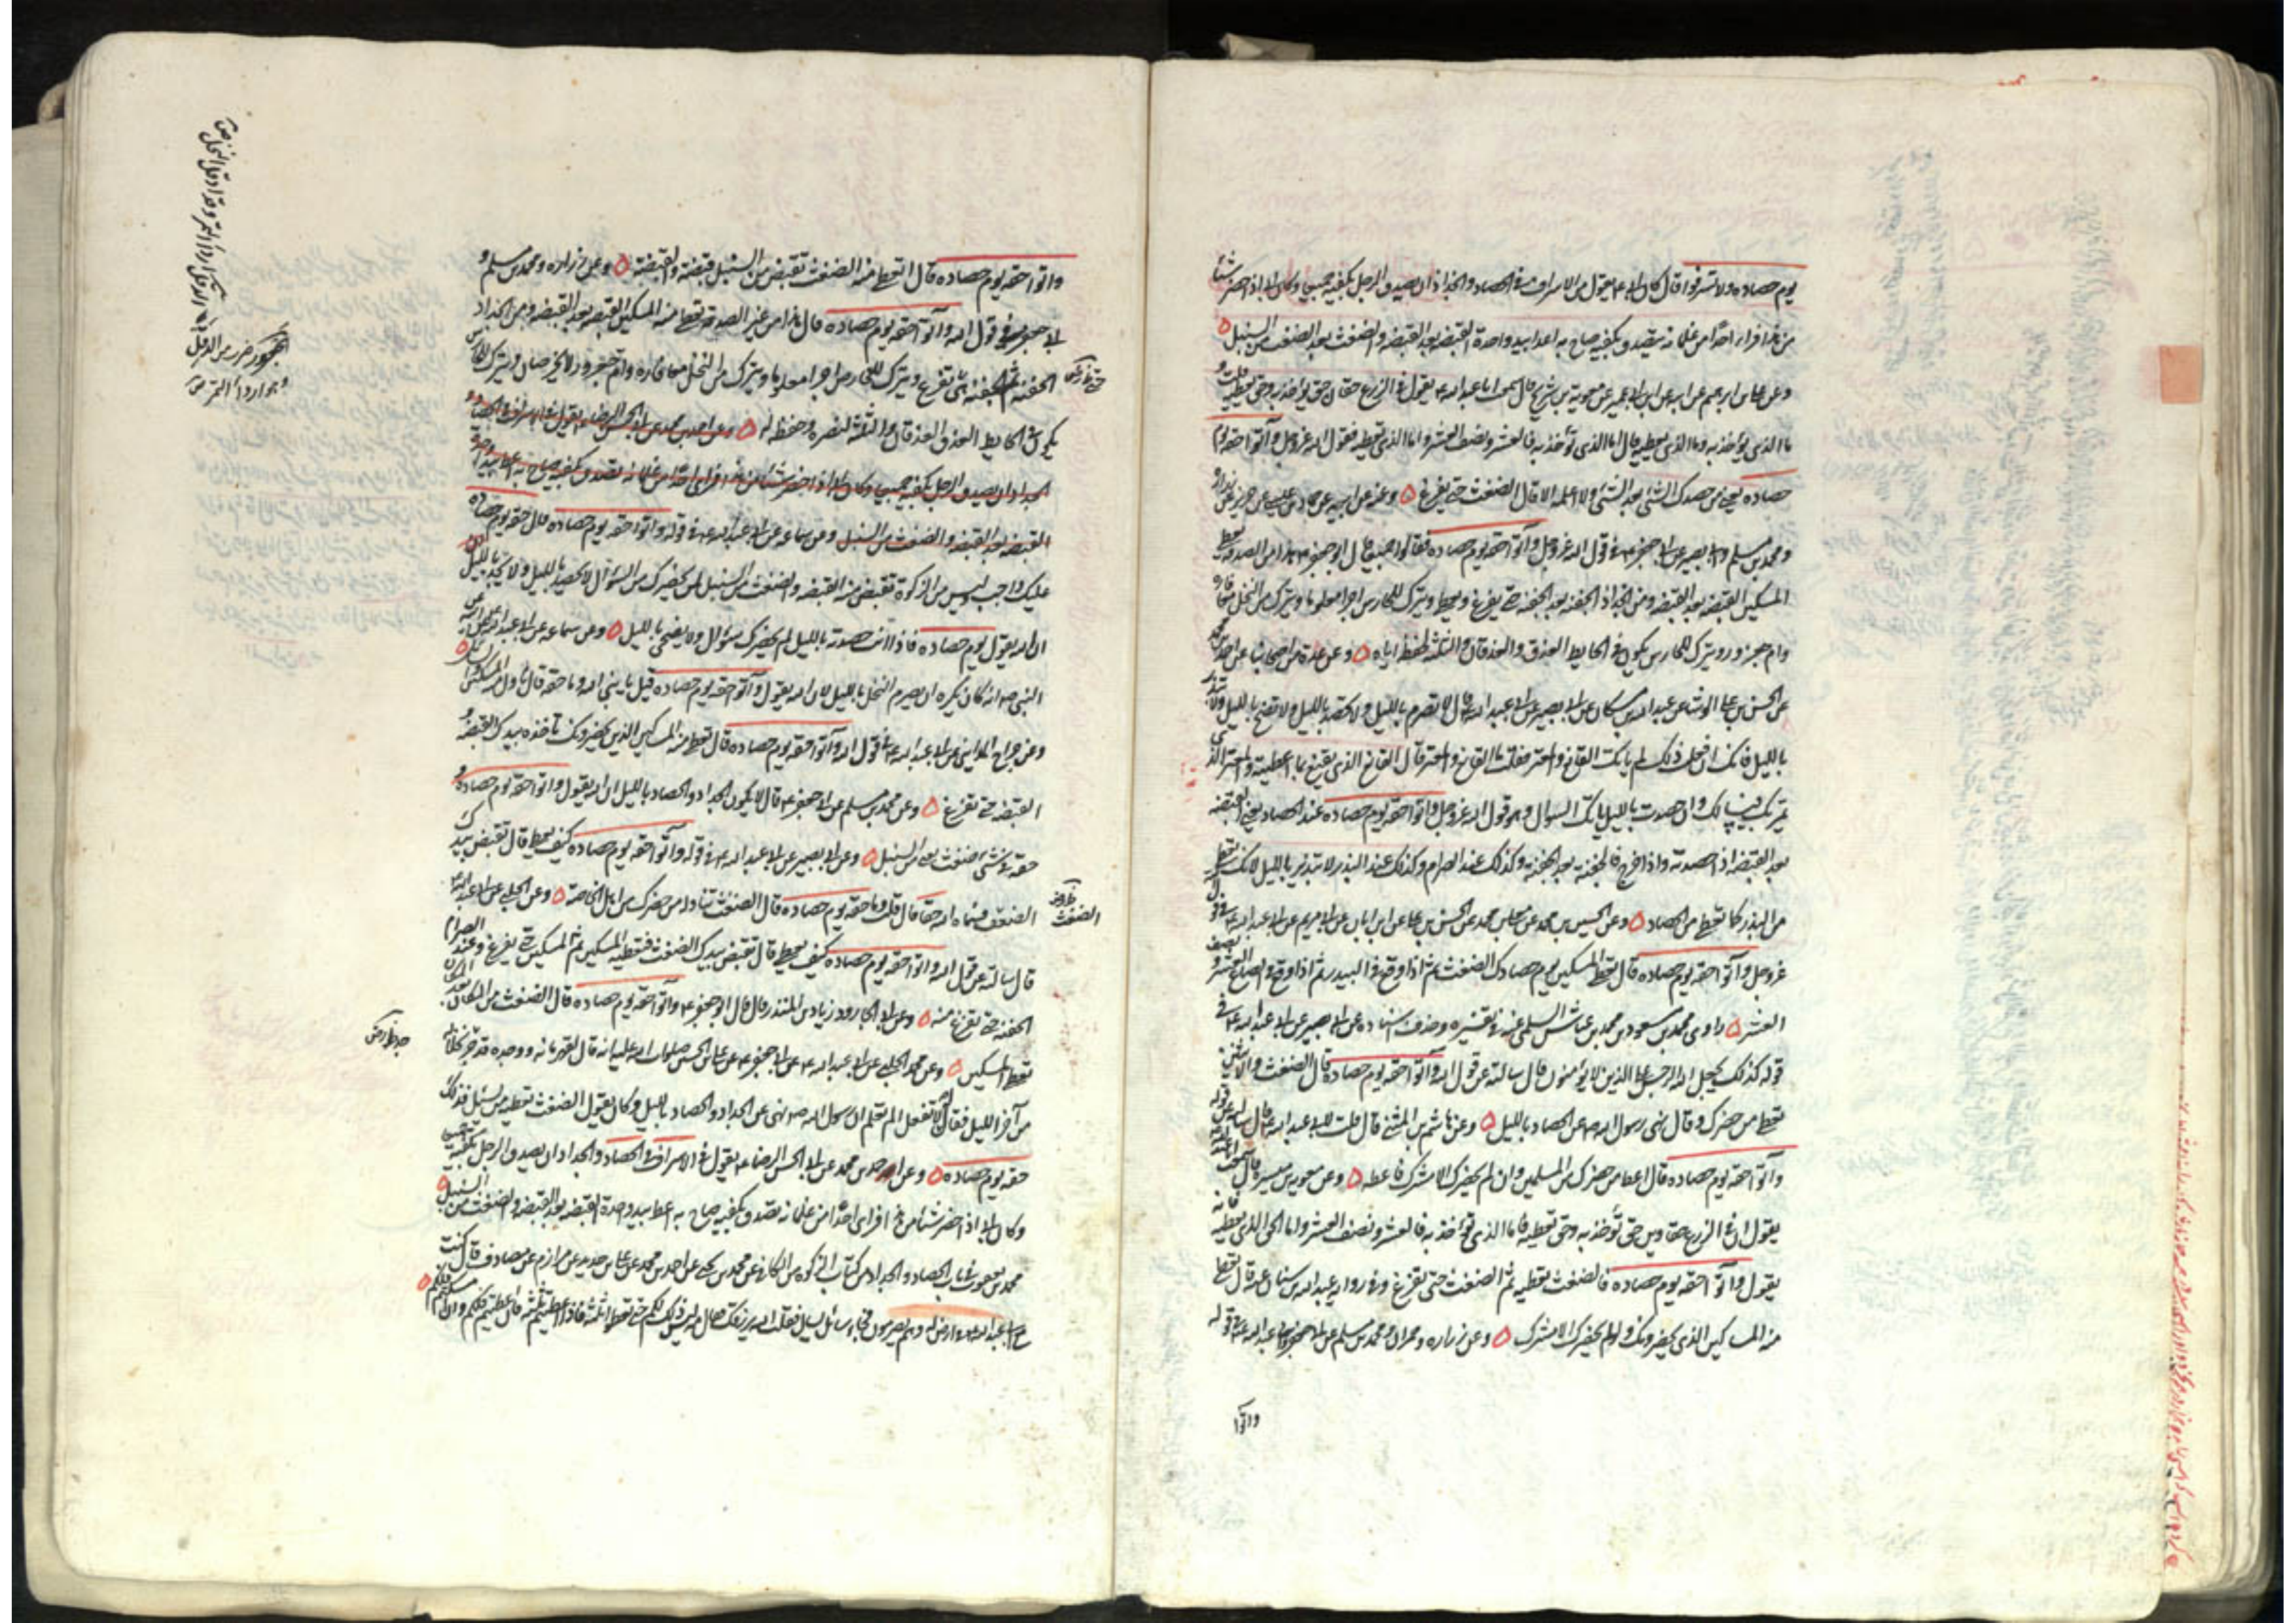 يوم حصاده ولا تسرفوا قال كان ابى ع يقول من الاسراف فى الحصاد والجداد ان يصدق الرجل بكفيه جميعا وكان ابى اذا حضر شيئا
من هذا فراى احدا من غلمانه يتصدق بكفيه صاح به اعط بيد واحدة القبضه بعد القبضه والضغث بعد الضغث من السنبل
وعن على بن ابرهيم عن ابيه عن ابن ابى عمير عن معوية بن شريح قال سمعت ابا عبد الله ع يقول فى الزرع حقان حق يؤخذ به وحق تعطيه قلت و
ما الذى يؤاخذ به وما الذى نعطيه قال اما الذى تؤخذ به فالعشر ونصف العشر واما الذى تعطيه فقول الله عز وجل وآتوا حقه يوم
حصاده يعنى من حصدك الشئ بعد الشئ ولا اعلمه الا قال الضغث حتى يفرغ وعنه عن ابيه عن حماد بن عيسى عن حريز عن زراره
ومحمد بن مسلم وابى بصير عن ابى جعفر ع فى قول الله عز وجل وآتوا حقه يوم حصاده فقالوا جميعا قال ابو جعفر ع هذا من الصدقه يعطى
المسكين القبضه بعد القبضه ومن الجداد الجفنه بعد الجفنه حتى يفرغ ويعطى ويترك للحارس اجرا معلوما ويترك من النخل معافاره
وام جعرور ويترك للحارس يكون فى الحايط العذق والعذقان والثلثه لحفظه اياه وعن عدة من اصحابنا عن احمد بن محمد
عن الحسن بن على الوشا عن عبد الله بن مسكان عن ابى بصير عن ابى عبد الله ع قال لا تصرم بالليل ولا تحصد بالليل ولا تضح بالليل ولا تبذر
بالليل فانك ان فعلت ذلك لم ياتك القانع والمعتر فقلت ما القانع والمعتر قال القانع الذى يقنع بما اعطيته والمعتر الذى
يمر بك فيسالك وان حصدت بالليل لم ياتك السوال وهو قول الله عز وجل واتوا حقه يوم حصاده عند الحصاد يعنى القبضه
بعد القبضه اذا حصدته واذا خرج فالجفنه بعد الجفنه وكذلك عند الصرام وكذلك عند البذر لا تبذر بالليل لانك تعطى
من البذر كما تعطى من الحصاد وعن الحسين بن محمد عن معلى بن محمد عن الحسن بن على عن ابان عن ابى مريم عن ابى عبد الله ع فى قول الله
عز وجل وآتوا حقه يوم حصاده قال تعطى المسكين يوم حصادك الضغث ثم اذا وقع فى البيدر ثم اذا وقع فى الصاع العشر و نصف
العشر وروى محمد بن مسعود بن محمد بن عياش السلمى فى تفسيره وحذف اسناده عن ابى بصير عن ابى عبد الله ع فى
قوله كذلك يجعل الله الرجس على الذين لا يؤمنون قال سالته عن قول الله وآتوا حقه يوم حصاده قال الضغث والاثنين
تعطى من حضرك وقال نهى رسول الله ص عن الحصاد بالليل وعن هاشم بن المثنى قال قلت لابى عبد الله ع
وآتوا حقه يوم حصاده قال اعط من حضرك من المسلمين وان لم يحضرك الا مشرك فاعطه وعن معوية بن ميسرة قال سمعت
يقول ان فى الزرع حقا دين حق تؤخذ به وحق تعطيه فاما الذى تؤاخذ به فالعشر ونصف العشر واما الحق الذى تعطيه فانه
يقول وآتوا حقه يوم حصاده فالضغث تعطيه ثم الضغث حتى تفرغ وفى رواية عبد الله بن سنان عنه قال تعطى
منه المساكين الذى يحضرونك ولو لم يحضرك الا مشرك وعن زراره وحمران ومحمد بن مسلم عن ابى جعفر وابى عبد الله ع فى قوله
واتوا
واتوا حقه يوم حصاده قال تعطى منه الضغث تقبض من السنبل قبضة والقبضة وعن زراره ومحمد بن مسلم و
ابى جعفر ع فى قول الله وآتوا حقه يوم حصاده قال هذا من غير الصدقه تعطى منه المسكين القبضه بعد القبضه ومن الجداد
الحفنة ثم الحفنه حتى تفرغ ويترك للخارص اجرا معلوما ويترك من النخل معافاره وام جعرور لا يخرصان ويترك للحارس
يكون فى الحايط العذق والعذقان والثلثه لنظره وحفظه له وعن احمد بن محمد عن ابى الحسن الرضا ع يقول فى الاسراف فى الحصاد و
الجداد ان يصدق الرجل بكفيه جميعا وكان ابى اذا حضر شيئا من هذا فراى احدا من غلمانه تصدق بكفيه صاح به اعط بيد واحدة
القبضه بعد القبضه والضغث من السنبل وعن سماعه عن ابى عبد الله ع فى قوله واتوا حقه يوم حصاده قال حقه يوم حصاده
عليك واجب وليس من الزكوة تقبض منه القبضه والضغث من السنبل لمن يحضرك من السؤال لا تحصد بالليل ولا تجد بالليل
ان الله يقول يوم حصاده فاذا انت حصدته بالليل لم يحضرك سؤال ولا يضحى بالليل وعن سماعه عن ابى عبد الله عن ابيه عن
النبى ص انه كان يكره ان يصرم النخل بالليل لان الله يقول وآتوا حقه يوم حصاده قيل يا نبى الله وما حقه قال ناول منه المسكين والسائل
وعن جراح المداينى عن ابى عبد الله ع فى قول الله وآتوا حقه يوم حصاده قال تعطى منه المساكين الذين يحضرونك تاخذه بيدك القبضه و
القبضه حتى تفرغ وعن محمد بن مسلم عن ابى جعفر ع قال لا يكون الجداد والحصاد بالليل ان الله يقول واتوا حقه يوم حصاده و
حقه فى شئ ضغث يعنى من السنبل وعن ابى بصير عن ابى عبد الله ع فى قوله وآتوا حقه يوم حصاده كيف يعطى قال تقبض بيدك
الضغث فسماه الله حقا قال قلت وما حقه يوم حصاده قال الضغث تناوله من حضرك من اهل الخاصة وعن الحلبى عن ابى عبد الله ع
قال سالته عن قول الله واتوا حقه يوم حصاده كيف يعطى قال تقبض بيدك الضغث فتعطيه المسكين ثم المسكين حتى يفرغ وعند الصرام
الحفنه حتى تفرغ منه وعن ابى الجارود زياد بن المنذر قال قال ابو جعفر ع وآتوا حقه يوم حصاده قال الضغث من المكان بعد المكان
تعطى المسكين وعن محمد الحلبى عن ابى عبد الله ع عن ابى جعفر ع عن على بن الحسين صلوات الله عليه انه قال لقهرمانه ووجده قد جذ نخلا له
من آخر الليل فقال له لا تفعل الم تعلم ان رسول الله ص نهى عن الجداد والحصاد بالليل وكان يقول الضغث تعطيه من يسئل فذلك
حقه يوم حصاده وعن احمد بن محمد عن ابى الحسن الرضا ع يقول فى الاسراف فى الحصاد والجداد ان يصدق الرجل بكفيه جميعا
وكان ابى اذا حضر شيئا من هذا فراى احدا من غلمانه تصدق بكفيه صاح به اعط بيد واحدة القبضه بعد القبضه والضغث من السنبل
محمد بن يعقوب فى باب الحصاد والجداد من كتاب الزكوه من الكافى عن محمد بن يحيى عن احمد بن محمد عن على بن حديد عن مرازم عن مصادف قال كنت
مع ابى عبد الله ع فى ارض له وهم يصرمون فجاء سائل يسال فقلت الله يرزقك فقال مه ليس ذلك لكم حتى تعطوا ثلثه فاذا اعطيتم ثلثه فان اعطيتم فلكم وان امسكتم فلكم